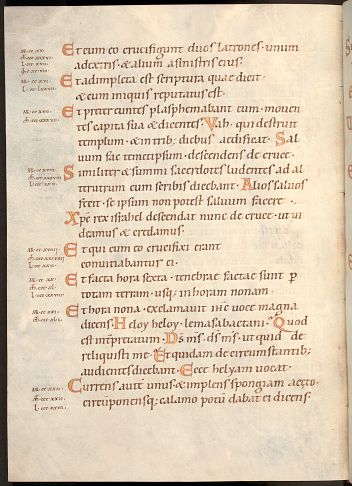 Et cum eo crucifigunt duos latrones· unum
adextris· & alium asinistris eius·
Et adimpleta est scriptura quae dicit·
& cum iniquis reputatus est·
Et preter euntes blasphemabant eum· mouen
tes capita sua & dicentes· Vah· qui destruit
templum· & intrib; diebus aedificat· Sal
uum fac temetipsum· descendens de cruce·
Similiter & summi sacerdotes ludentes ad al
terutrum cum scribis dicebant· Alios saluos
fecit· se ipsum non potest saluum facere·
Xpc rex israhel descendat nunc de cruce· ut ui
deamus & credamus·
Et qui cum eo crucifixi erant
conuitiabantur ei·
Et facta hora sexta· tenebrae factae sunt p
totam terram· usq; in horam nonam·
Et hora nona· exclamauit ihc uoce magna
dicens· Heloy heloy· lema sabactani· Quod
est interpretatum· Ds ms· ds ms· ut quid de
reliquisti me· Et quidam de circumstantib;
audientes dicebant· Ecce helyam uocat·
Currens autē unus· & implens spongiam aceto·
circūponensq; calamo potū dabat ei dicens·